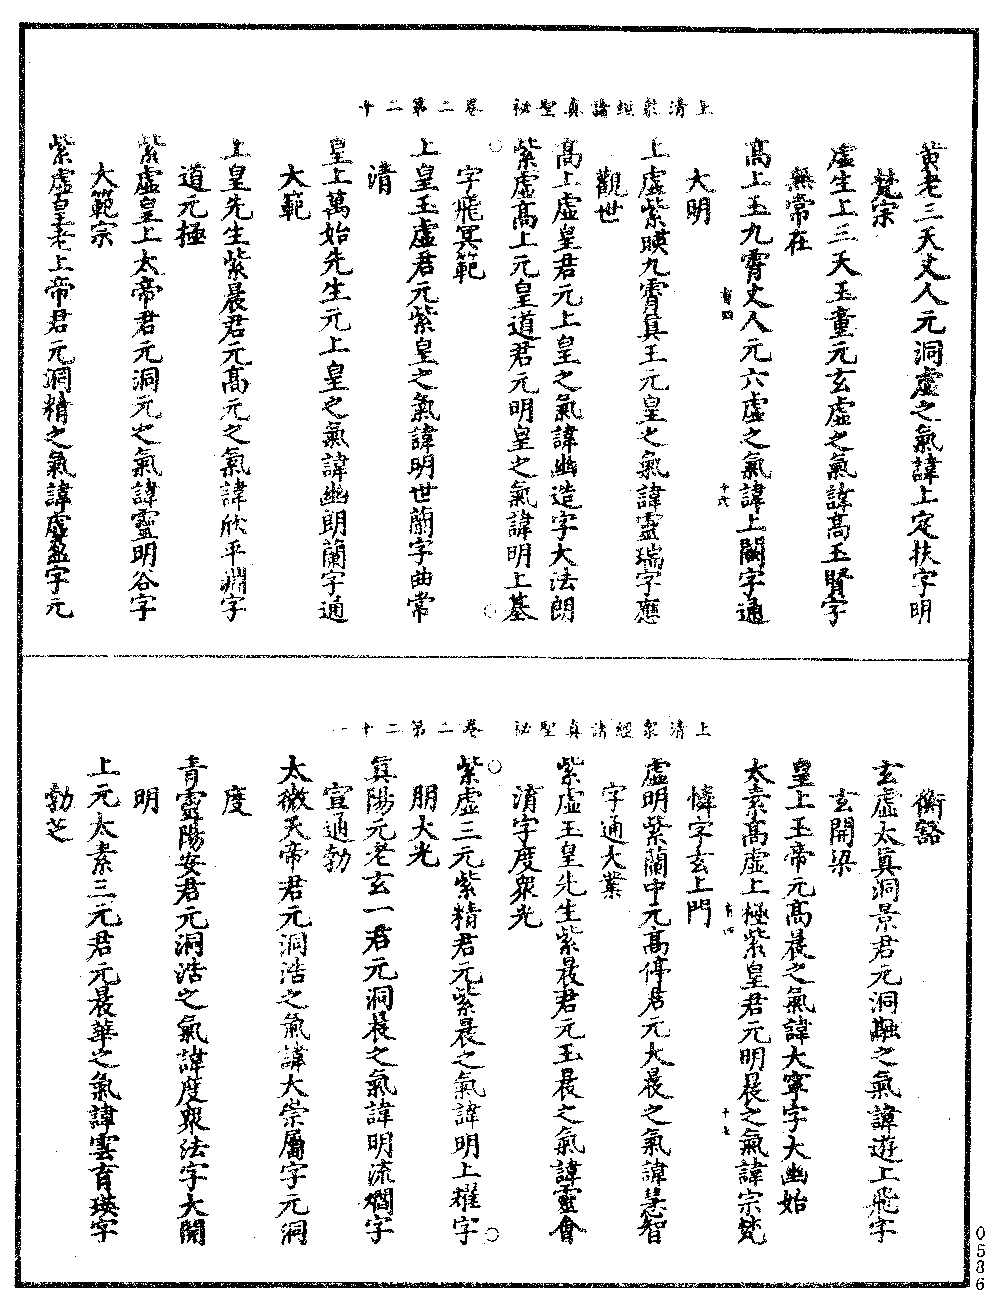 上清衆經諸真聖祕　卷二第二十
黃老三天丈人元洞虛之氣諱上定扶字明
梵宗
虛生上三天玉童元玄虛之氣諱高玉腎字
無常在
高上玉九霄丈人元六虛之氣諱上關字通
有四
十六
大明
上虛紫暎九霄真王元皇之氣諱靈瑞字應
觀世
高上虛皇君元上皇之氣諱幽造字大法朗
紫虛高上元皇道君元明皇之氣諱明上基
字飛冥範
上皇玉虛君元紫皇之氣諱明世蘭字曲常
清
皇上萬始先生元上皇之氣諱幽朗蘭字通
大範
上皇先生紫晨君元高元之氣諱欣平淵字
道元極
紫虛皇上太帝君元洞元之氣諱靈明谷字
大範宗
紫虛皇老上帝君元洞精之氣諱虛盈字元
上清衆經諸真聖祕　卷二第二十一
衡豁
玄虛太真洞景君元洞融之氣諱遊上飛字
玄開梁
皇上玉帝元高晨之氣諱大寧字大幽始
太素高虛上極紫皇君元明晨之氣諱宗梵
有四
十七
憐字玄上門
虛明紫蘭中元高停君元大晨之氣諱慧智
字通大業
紫虛玉皇先生紫晨君元玉晨之氣諱靈會
清字度衆光
紫虛三元紫精君元紫晨之氣諱明上耀字
朋大光
真陽元老玄一君元洞晨之氣諱明流䦨字
宣通勃
太微天帝君元洞浩之氣諱大崇屬字元洞
度
青靈陽安君元洞浩之氣諱度衆法字大開
明
上元太素三元君元晨華之氣諱雲育瑛字
勃芝
0536